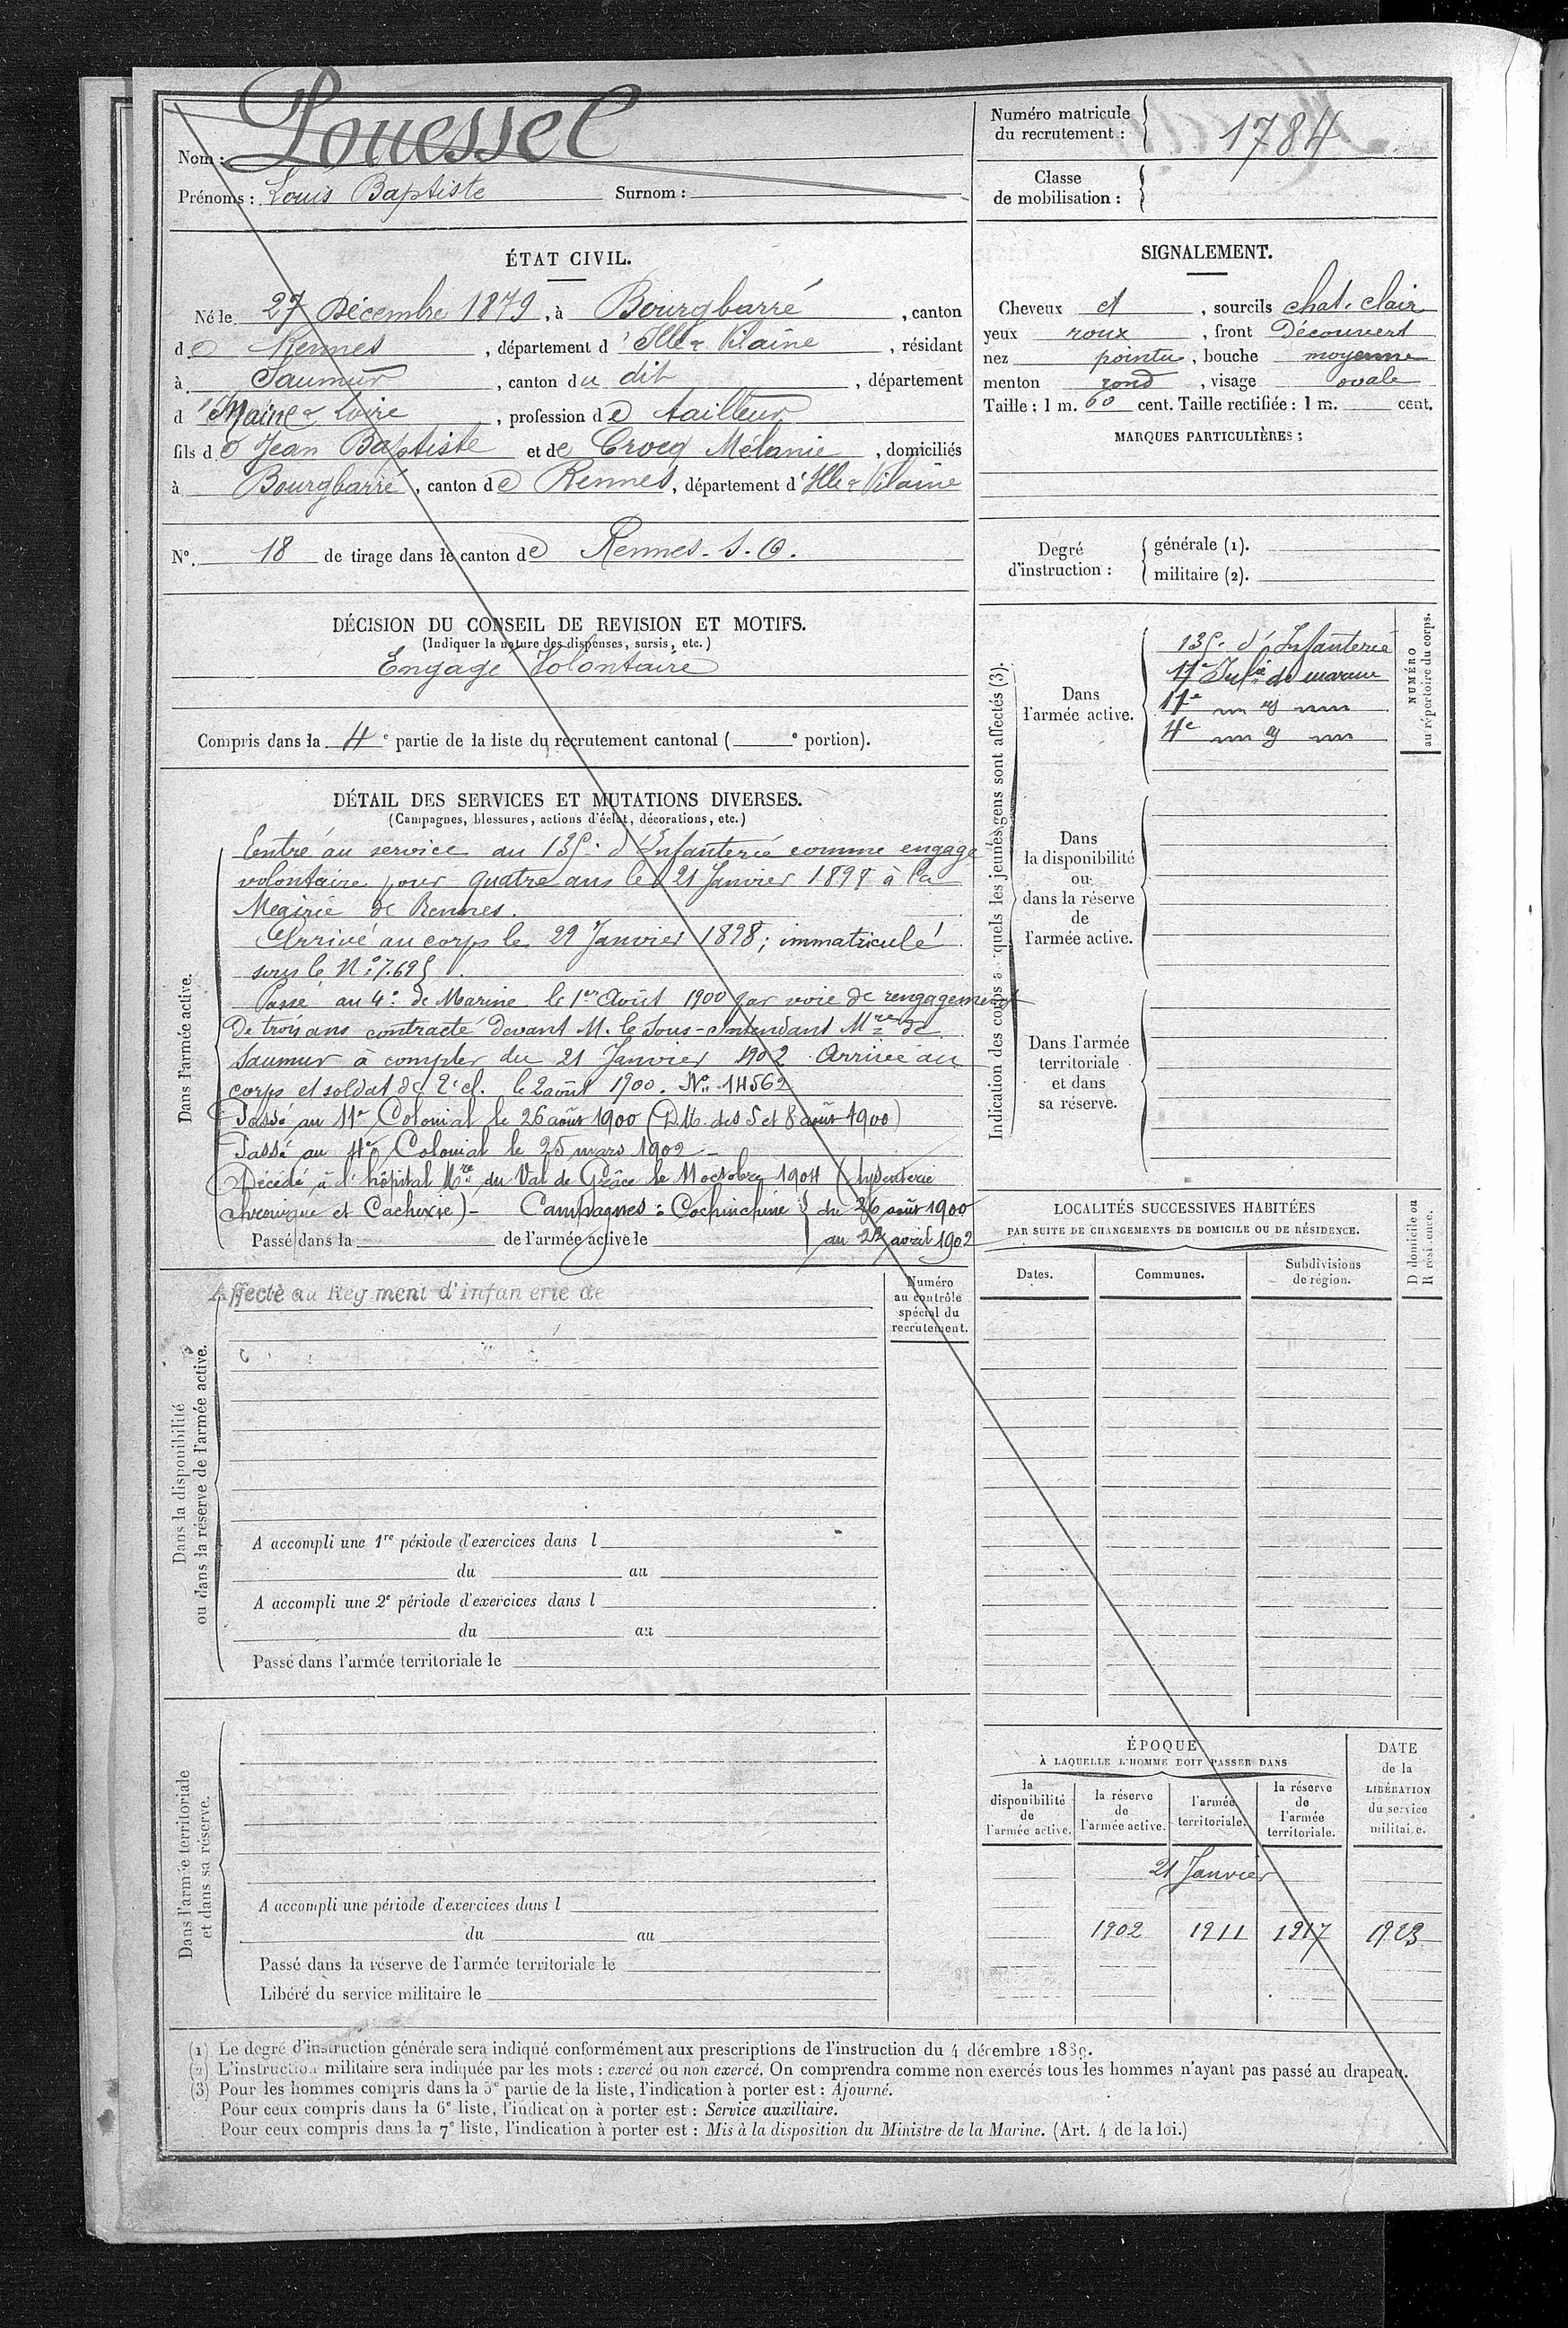 Louessel
Nom :
Prénoms : Louis Baptiste Surnom :
ÉTAT CIVIL.
Né le 27 Décembre 1879, à Bourgbarré, canton
de Rennes, département d'Ille & Vilaine, résidant
à Saumur, canton du dit, département
d' Maine & Loire, profession de tailleur
fils de Jean Baptiste et de Crocq Mélanie, domiciliés
à Bourgbarré, canton de Rennes, département d'Ille & Vilaine
N° 18 de tirage dans le canton de Rennes-S.O.
DÉCISION DU CONSEIL DE REVISION ET MOTIFS.
(Indiquer la nature des dispenses, sursis, etc.)
Engagé Volontaire
Compris dans la 4e partie de la liste du recrutement cantonal ( e portion).
DÉTAIL DES SERVICES ET MUTATIONS DIVERSES.
(Campagnes, blessures, actions d'éclat, décorations, etc.)
Dans l'armée active.
Entré au service au 135e d'Infanterie comme engagé
volontaire pour quatre ans le 21 Janvier 1898 à la
Mairie de Rennes.
Arrivé au corps le 22 Janvier 1898; immatriculé
sous le N° 7.695.
Passé au 4e de Marine le 1er Août 1900 par voie de rengagement
de trois ans contracté devant M. le Sous-Intendant Mre de
Saumur à compter du 21 Janvier 1902. Arrivé au
corps et soldat de 2e cl. le 2 août 1900. No 14562
Passé au 11e Colonial le 26 août 1900 (D.M. des 5 et 8 août 1900)
Passé au 4e Colonial le 25 mars 1902 -
Décédé à l'hôpital Mre du Val de Grâce le 11 octobre 1904 (dysenterie
chronique et Cachexie) - Campagnes : Cochinchine } du 26 août 1900
Passé dans la de l'armée active le au 22 avril 1902
Dans la disponibilité
ou dans la réserve de l'armée active.
Affecté au Régiment d'Infanterie de
Numéro
au contrôle
spécial du
recrutement.
A accompli une 1re période d'exercices dans l
du au
A accompli une 2e période d'exercices dans l
du au
Passé dans l'armée territoriale le
Dans l'armée territoriale
et dans sa réserve.
A accompli une période d'exercices dans l
du au
Passé dans la réserve de l'armée territoriale le
Libéré du service militaire le
Numéro matricule
du recrutement : 1784
Classe
de mobilisation :
SIGNALEMENT.
Cheveux et, sourcils chat. clair
yeux roux, front Découvert
nez pointu, bouche moyenne
menton rond, visage ovale
Taille : 1 m. 60 cent. Taille rectifiée : 1 m. cent.
MARQUES PARTICULIÈRES :
Degré
d'instruction :
générale (1).
militaire (2).
Indication des corps auxquels les jeunes gens sont affectés (3).
NUMÉRO
au répertoire du corps.
Dans
l'armée active.
135e d'Infanterie
11e Infie de marine
11e
4e
Dans
la disponibilité
ou
dans la réserve
de
l'armée active.
Dans l'armée
territoriale
et dans
sa réserve.
LOCALITÉS SUCCESSIVES HABITÉES
PAR SUITE DE CHANGEMENTS DE DOMICILE OU DE RÉSIDENCE.
Dates. Communes. Subdivisions
de région.
D domicile ou
R résidence.
ÉPOQUE
À LAQUELLE L'HOMME DOIT PASSER DANS
la
disponibilité
de
l'armée active.
la réserve
de
l'armée active.
l'armée
territoriale.
la réserve
de
l'armée
territoriale.
DATE
de la
LIBÉRATION
du service
militaire.
21 Janvier
1902 1911 1917 1923
(1) Le degré d'instruction générale sera indiqué conformément aux prescriptions de l'instruction du 4 décembre 1889.
(2) L'instruction militaire sera indiquée par les mots : exercé ou non exercé. On comprendra comme non exercés tous les hommes n'ayant pas passé au drapeau.
(3) Pour les hommes compris dans la 5e partie de la liste, l'indication à porter est : Ajourné.
Pour ceux compris dans la 6e liste, l'indication à porter est : Service auxiliaire.
Pour ceux compris dans la 7e liste, l'indication à porter est : Mis à la disposition du Ministre de la Marine. (Art. 4 de la loi.)